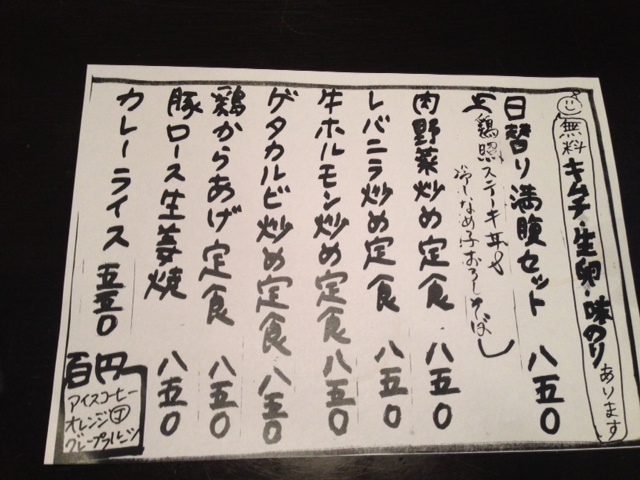 無料 キムチ・生卵・味のり あります
日替り満腹セット 八五〇
鶏照ステーキ丼や
冷しなめ子おろしそば
肉野菜炒め定食 八五〇
レバニラ炒め定食 八五〇
牛ホルモン炒め定食 八五〇
ゲタカルビ炒め定食 八五〇
鶏からあげ定食 八五〇
豚ロース生姜焼 八五〇
カレーライス 五五〇
百円
アイスコーヒー
オレンジ
グレープフルーツ